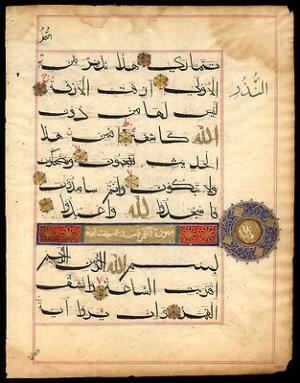 تتمارى هذا نذير من
النذر
الاولى ازفت الازفة
ليس لها من دون
الله كاشفة افمن هذا
الحديث تعجبون وتضحكون
ولا تبكون وانتم سامدون
فاسجدوا لله واعبدوا
سورة القمر
بسم الله الرحمن الرحيم
اقتربت الساعة وانشق
القمر وان يروا آية